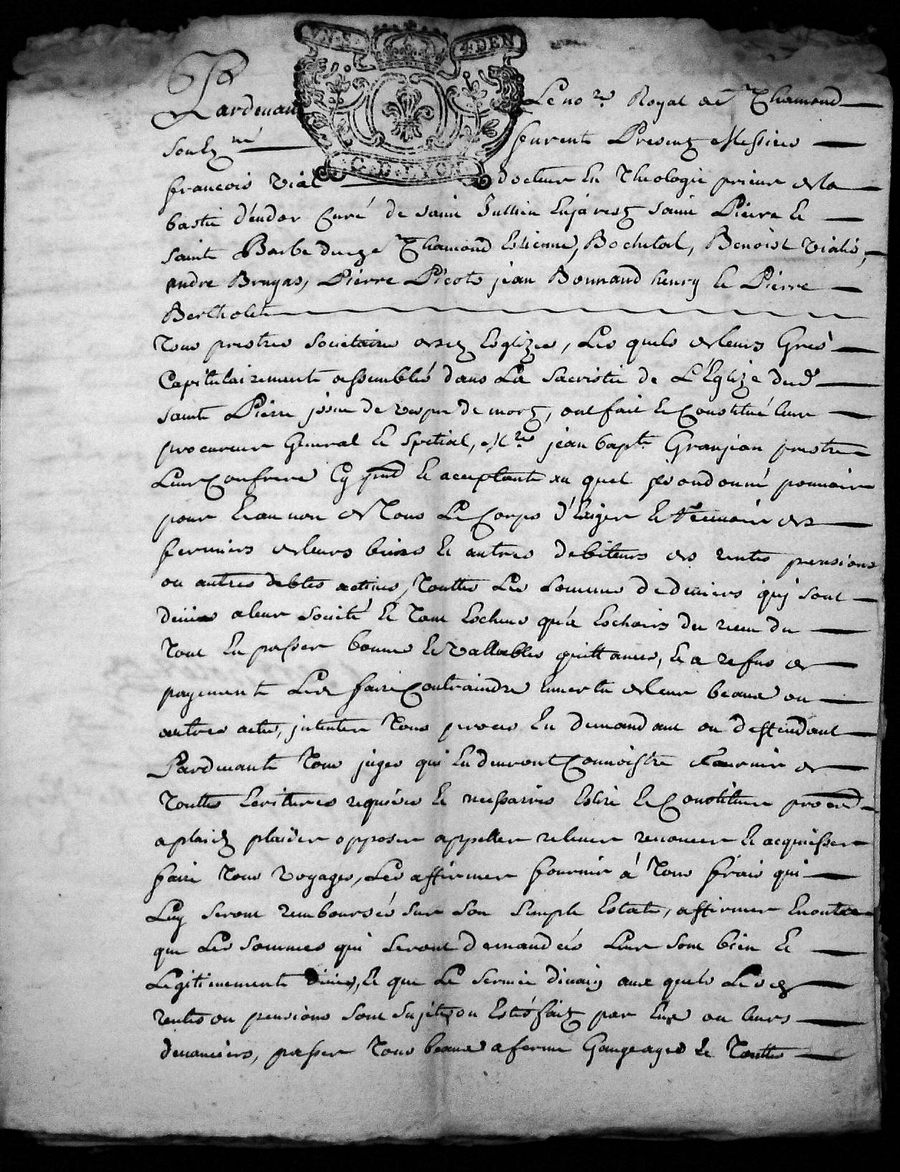 VN.S. 4.DEN
G.D.LYON
Pardevant Le no.re Royal de St Chamond
soubz.né furent Presentz Messire
françois Vial docteur En Theologie prieur de la
bastie d'endor Curé de saint Jullien Enjarestz saint Pierre Et
sainte Barbe St Chamond Estienne Bochetal, Benoist Vialis,
andré Bruyas, Pierre Picots jean Bonnand henry Et Pierre
Bertholet
Tous prestres sociétaires Esglizes, Les quels de leurs Grés
Capitulairement assemblés dans La Sacristie de L'Eglize dud.t
saint Pierre de mortz, ont fait Et Constitué leur
procureur General Et Spetial, M.re jean bapt.e Granjean prestre
Leur Confrere Cy pnt Et acceptant au quel donné pouvoir
pour Et au nom de Tous Le Corps d'Exiger Et des
fermiers de leurs biens Et autres debiteurs de rentes pensions
ou autres debtes actives, Touttes Les sommes de deniers qui sont
deües a leur société Et Tout Escheus qu'a Eschoirs du receu du
Tout En passer bonnes Et Vallables quittances, Et a refus de
payement Les faire Contraindre Envertu de leur beaux ou
autres actes, intenter Tous proces En demandant ou deffendant
Pardevant Tous juges qui En devront Connoistre Fournir de
Touttes Ecritures requises Et nessaires Eslire Et Constituer
a plaidz plaider opposer appeller relever renoncer Et acquiesser
faire Tous Voyages, Les affirmer fournir à Tous frais qui
Luy seront remboursés sur son simple Estat, affirmer En outre
que Les sommes qui seront demandées Leur sont bien Et
Legitimement düees, Et que Le service divain aux quels Lesdz
rentes ou pensions sont sujets, Est fait par Eux ou leurs
devanciers, passer Tous beaux a ferme Et Touttes